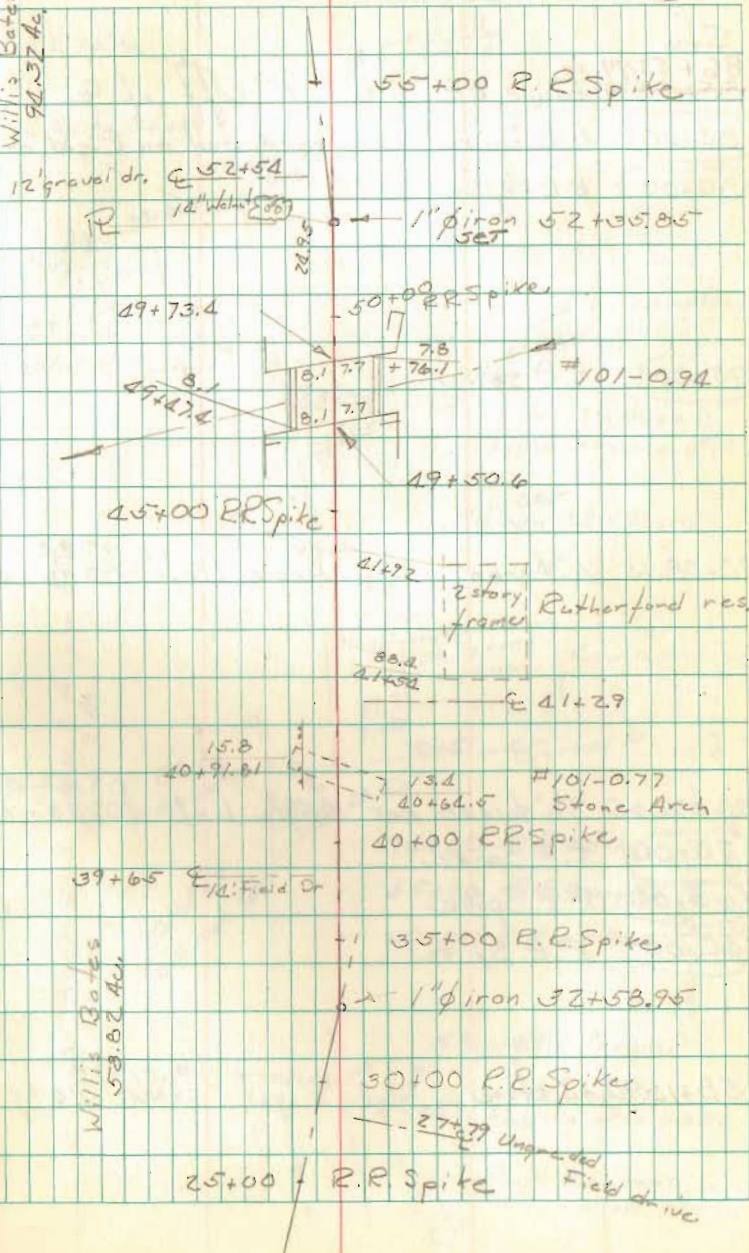 Willis Bates
94.32 Ac.
55+00 R.R Spike
12' gravel dr. ℄ 52+54
14" Walnut
PL
1"ϕ iron 52+35.85
SET
24.95
50+00 RR Spike
49+73.4
7.8
8.1 7.7 +76.1
#101-0.94
8.1
49+47.4
8.1 7.7
49+50.6
45+00 RR Spike
41+92
2 story
frame
Rutherford res.
88.4
41+54
℄ 41+29
15.8
40+91.81
13.4
40+64.5
#101-0.77
Stone Arch
40+00 RR Spike
39+65 ℄ 14' Field Dr
35+00 R.R. Spike
1"ϕ iron 32+58.95
Willis Bates
58.82 Ac.
30+00 R.R. Spike
27+79 Ungraded
℄
Field drive
25+00 R.R. Spike